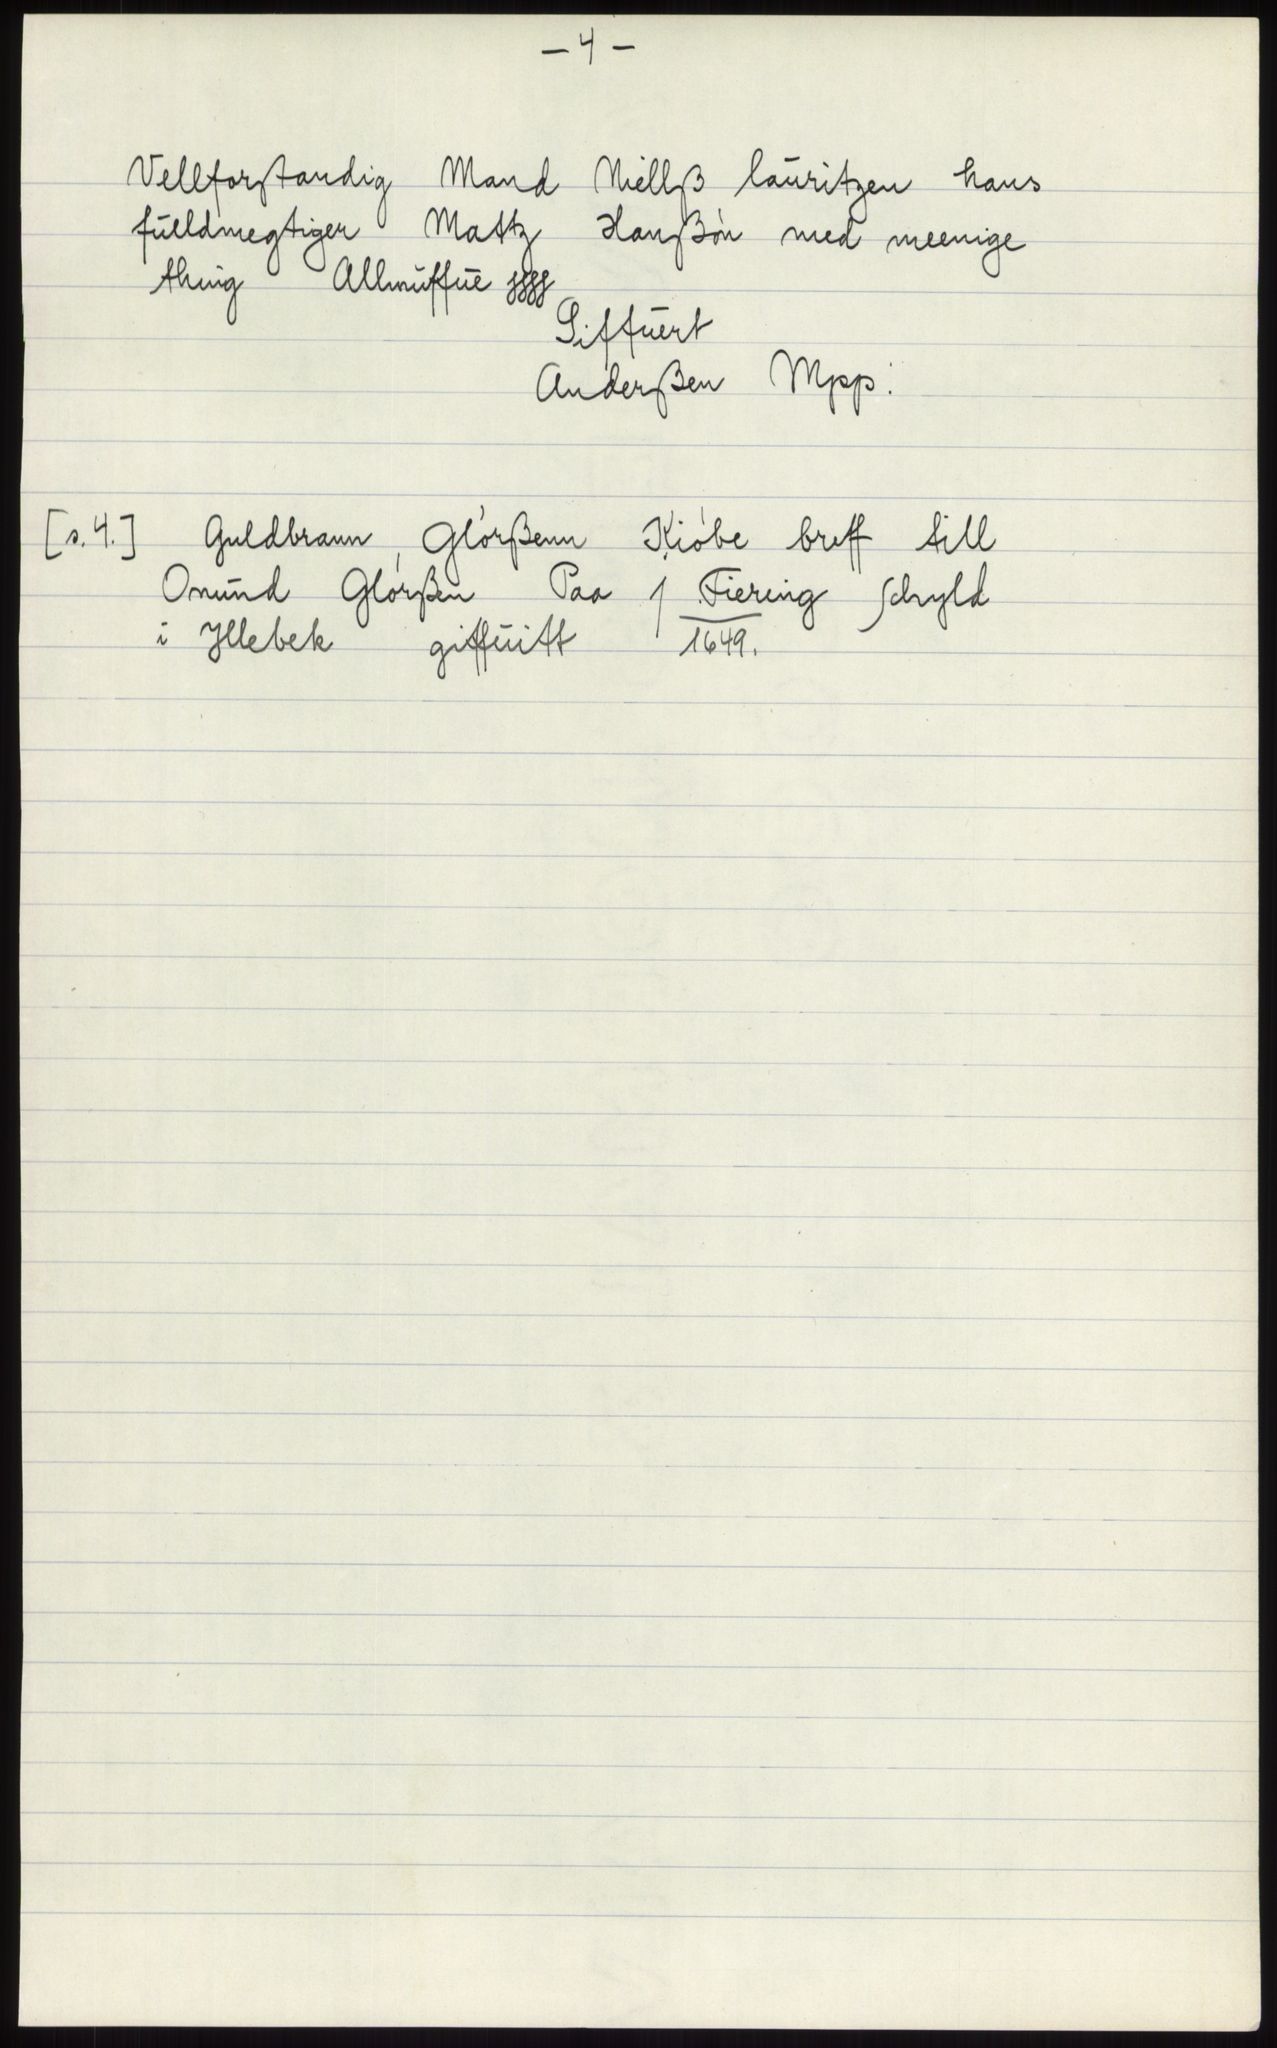 – 4 –
Vellforstandig Mand Niellß lauritzen hans
fuelldmegtiger Mattz Hanßøn med meenige
thing Allmuffue ssss
Siffuert
Anderßen Mpp:
[s. 4.] Guldbrann Glórßenn Kióbe breff till
Onund Glórßen Paa j Fiering schyld
i Yllebek giffuitt 1649.